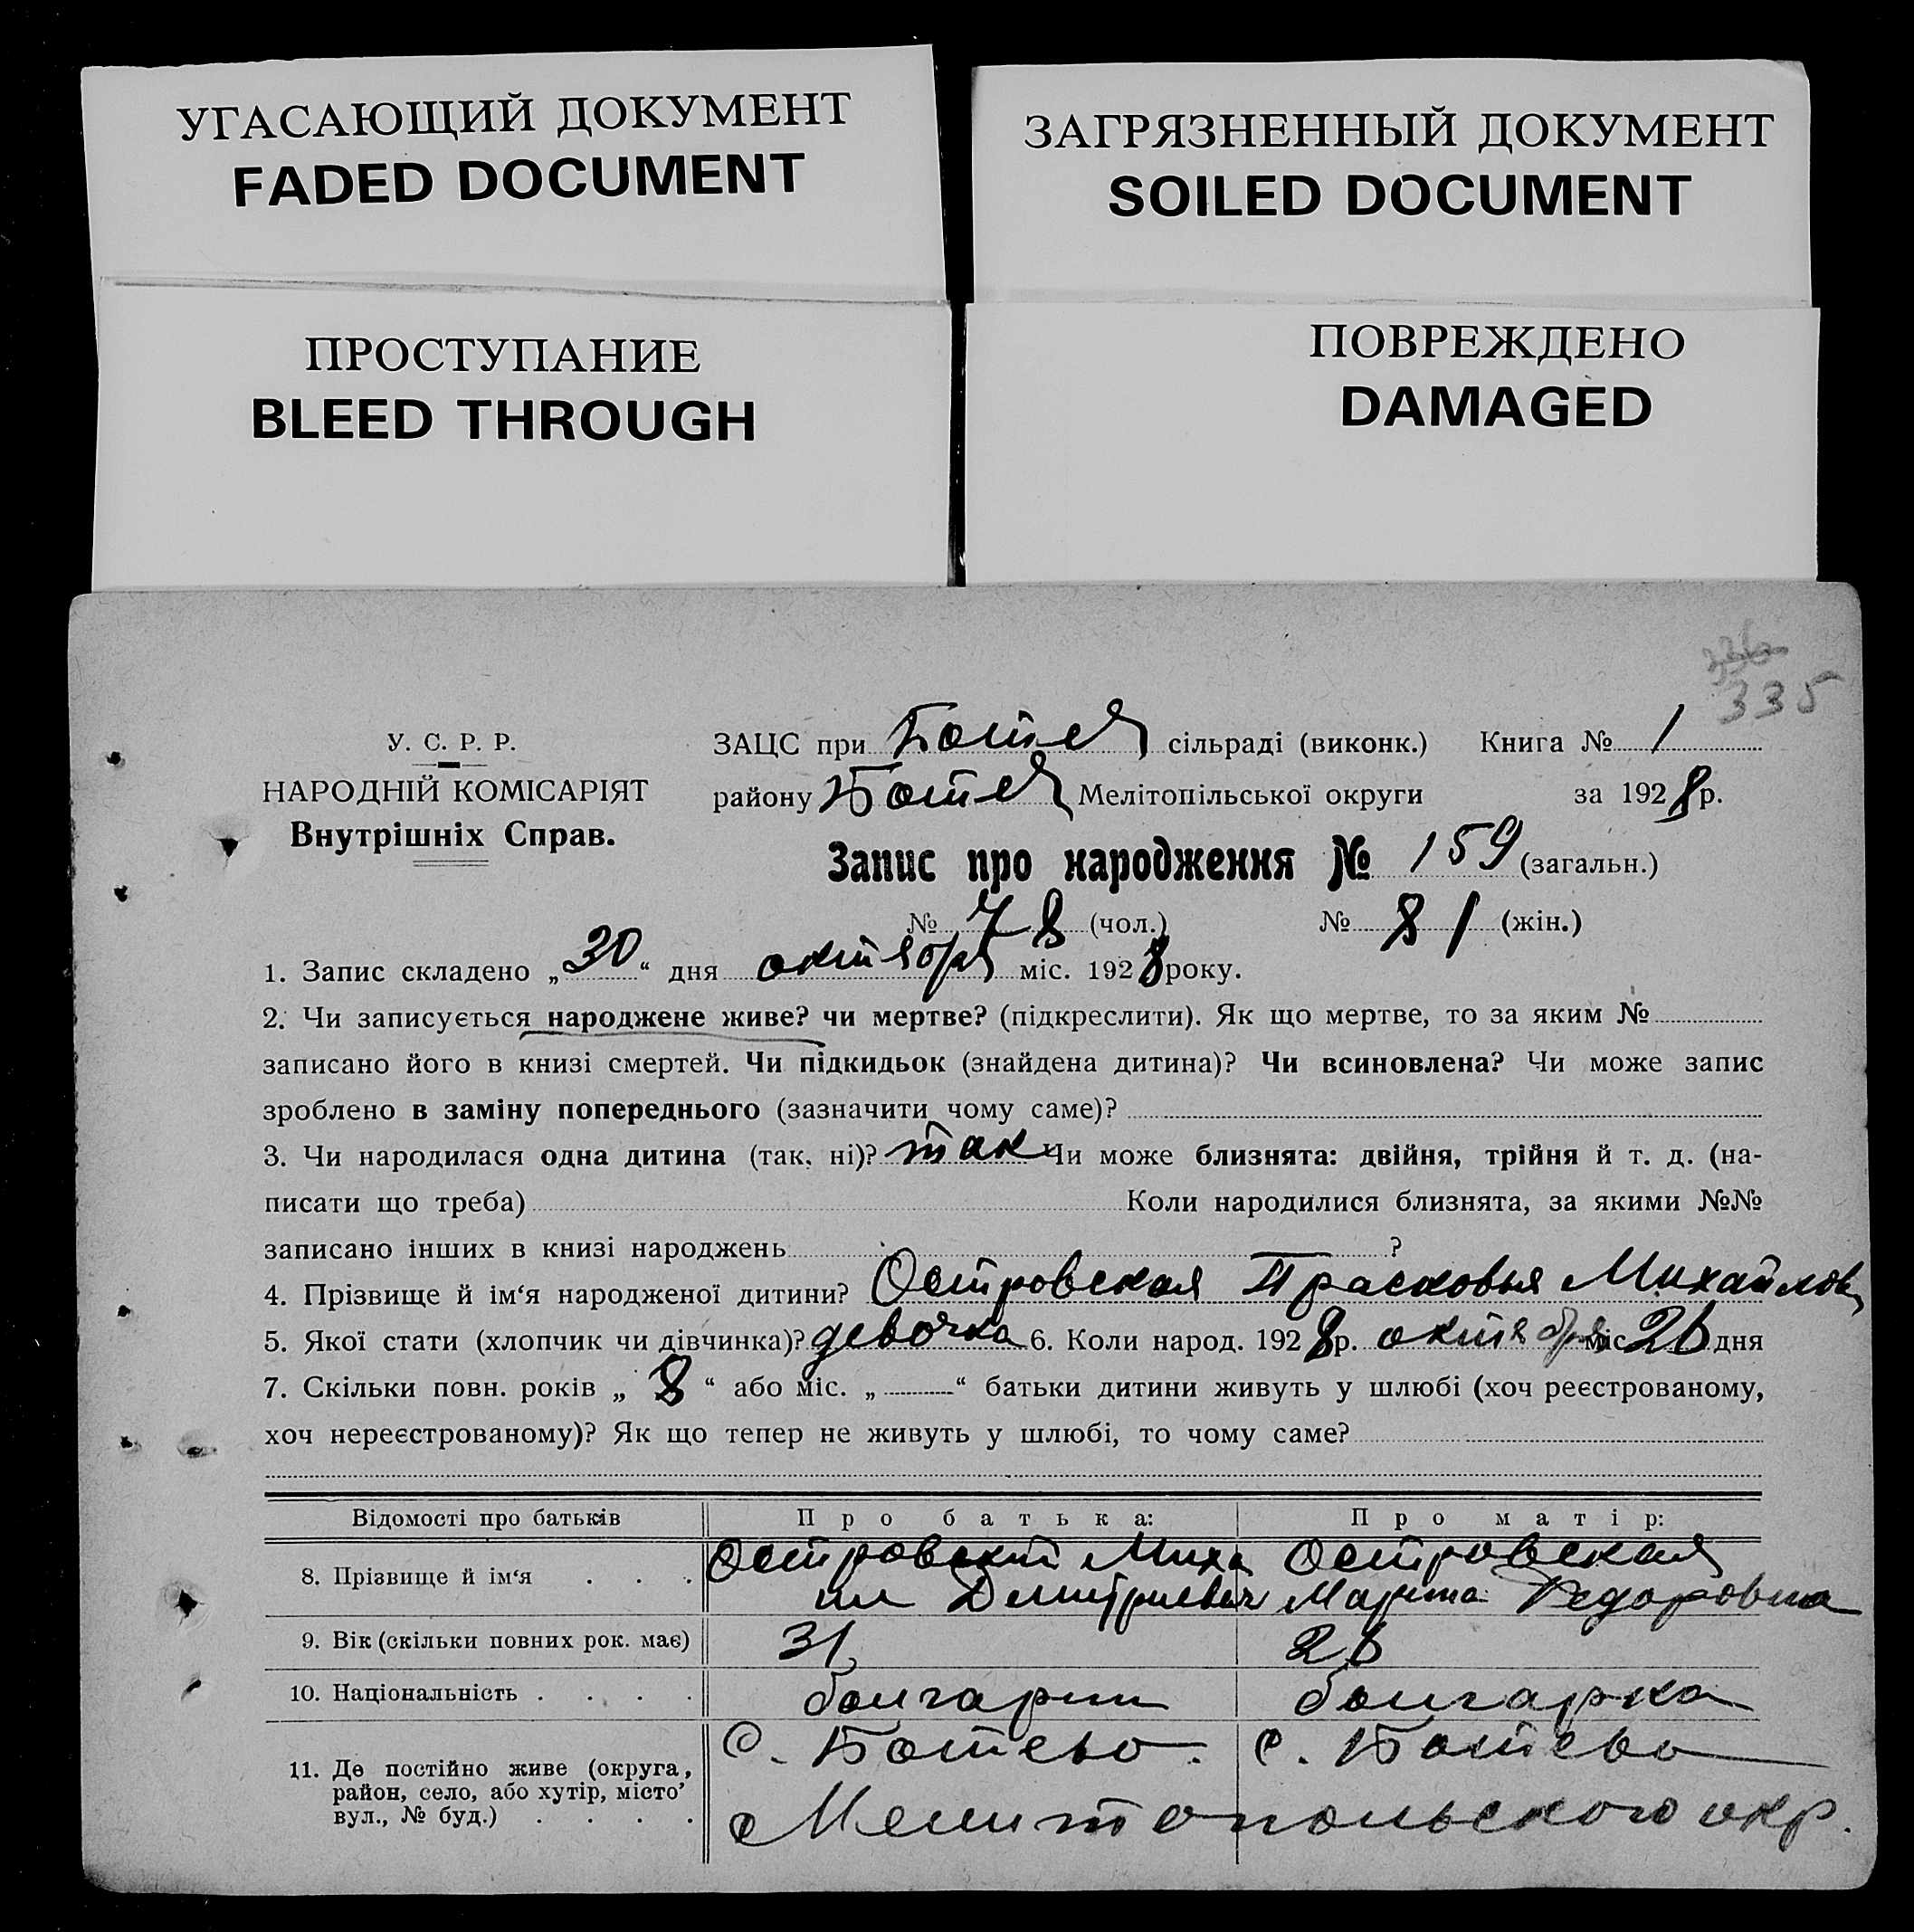 УГАСАЮЩИЙ ДОКУМЕНТ
FADED DOCUMENT
ЗАГРЯЗНЕННЫЙ ДОКУМЕНТ
SOILED DOCUMENT
ПРОСТУПАНИЕ
BLEED THROUGH
ПОВРЕЖДЕНО
DAMAGED
335
У. С. Р. Р.
НАРОДНІЙ КОМІСАРІЯТ
Внутрішніх Справ.
ЗАЦС при Ботев сільраді (виконк.) Книга № 1
району Ботев Мелітопільської округи за 1928 р.
Запис про народження № 159 (загальн.)
№ 78 (чол.) № 81 (жін.)
1. Запис складено „30“ дня октября міс. 1928 року.
2. Чи записується народжене живе? чи мертве? (підкреслити). Як що мертве, то за яким №
записано його в книзі смертей. Чи підкидьок (знайдена дитина)? Чи всиновлена? Чи може запис
зроблено в заміну попереднього (зазначити чому саме)?
3. Чи народилася одна дитина (так, ні)? так Чи може близнята: двійня, трійня й т. д. (на-
писати що треба) Коли народилися близнята, за якими №№
записано інших в книзі народжень ?
4. Прізвище й ім‘я народженої дитини? Островская Прасковья Михайлов
5. Якої стати (хлопчик чи дівчинка)? девочка 6. Коли народ. 1928 р. октября міс. 26 дня
7. Скільки повн. років „8“ або міс. „—“ батьки дитини живуть у шлюбі (хоч реєстрованому,
хоч нереєстрованому)? Як що тепер не живуть у шлюбі, то чому саме?
Відомості про батьків Про батька: Про матір:
8. Прізвище й ім‘я . . . Островский Миха Островская
ил Дмитриевич Федоровна
9. Вік (скільки повних рок. має) 31 26
10. Національність . . . . болгарин болгарка
11. Де постійно живе (округа, с. Ботево. с. Ботево
район, село, або хутір, місто’
вул., № буд.) . . . . Мелитопольского окр.